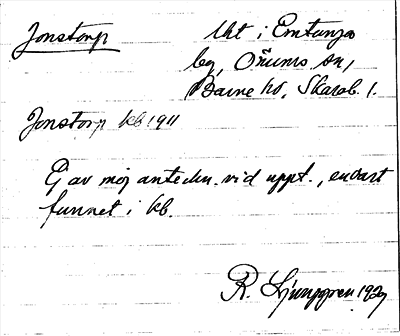 Jonstorp
Uht i Emtunga
by, Önums sn,
Barne hd, Skarab. l.
Jonstorp kb 1911
Ej av mig anteckn. vid uppt., endast
funnet i kb.
R. Ljunggren 1929